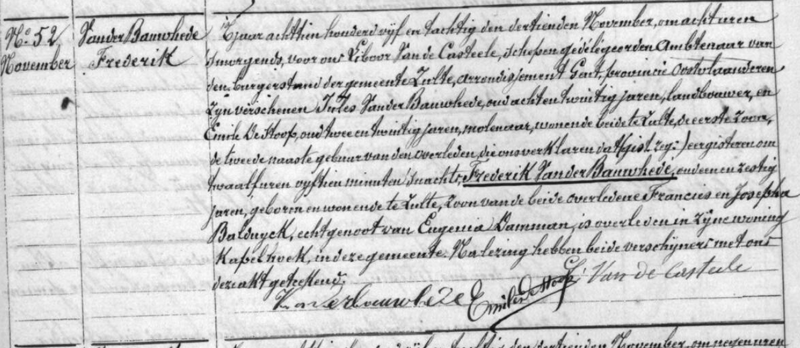 No 52
November
Van der Bauwhede
Frederik
T jaar achttien honderd vijf en tachtig den dertienden November, om acht uren
smorgends, voor ons Liboor Van de Casteele, schepen gedelegeerden Ambtenaar van
den burgerstand der gemeente Zulte, arrondissement Gent, provincie Oostvlaanderen
zyn verschenen Jules Van der Bauwhede, oud acht en twintig jaren, landbouwer, en
Emile De Stoop, oud twee en twintig jaren, molenaar, wonende beide te Zulte, de eerste zoon,
de tweede naaste gebuur van den overleden, die ons verklaren dat eergisteren om
twaalf uren vyftien minuten snachts, Frederik Van der Bauwhede, oud een en zestig
jaren, geboren en wonende te Zulte, zoon van de beide overledene Francies en Josepha
Balduyck, echtgenoot van Eugenia Damman, is overleden in zyne wooning
Kapelhoek, in deze gemeente. Na lezing hebben beide verschyners met ons
deze akt geteekend.
Vanderbauwhede Emile De Stoop L. Van de Casteele
den dertienden November, om negen uren